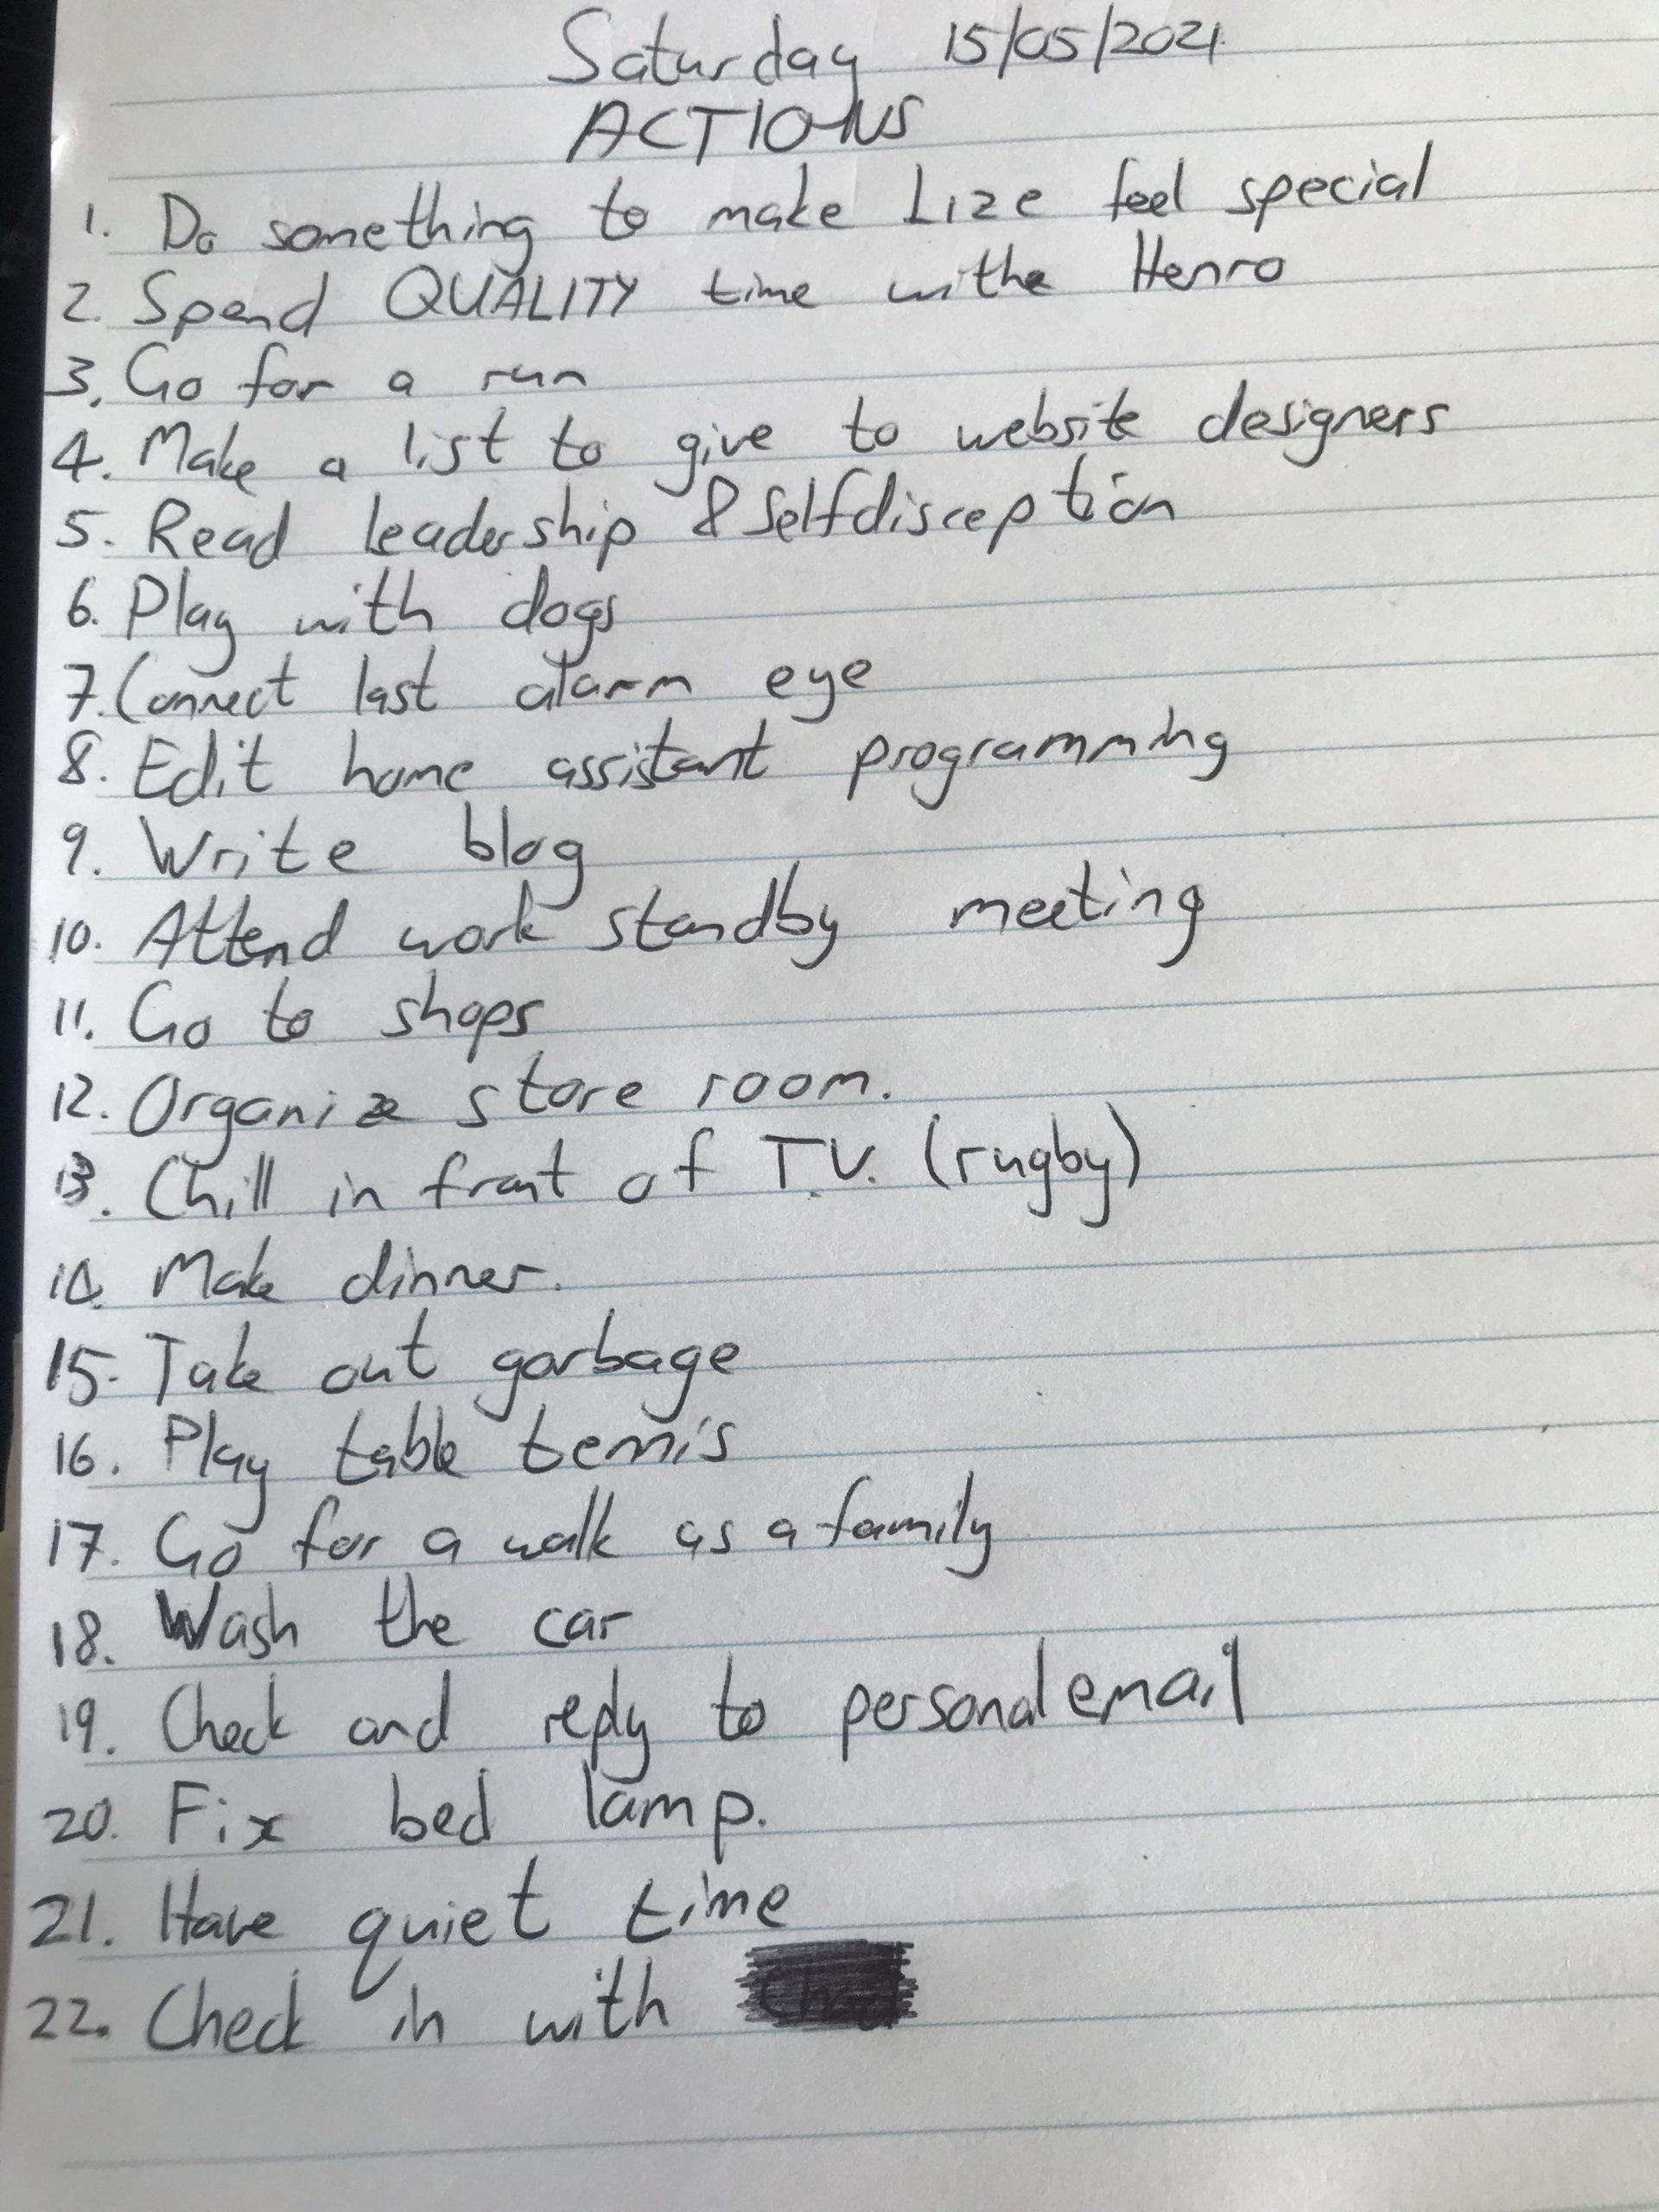 Saturday 15/05/2021
ACTIONS
1. Do something to make Lize feel special
2. Spend QUALITY time withe Henro
3. Go for a run
4. Make a list to give to website designers
5. Read leadership & Selfdisception
6. Play with dogs
7. Connect last alarm eye
8. Edit home assistant programming
9. Write blog
10. Attend work standby meeting
11. Go to shops
12. Organize store room.
13. Chill in front of T.V. (rugby)
14. Make dinner.
15. Take out garbage
16. Play table tennis
17. Go for a walk as a family
18. Wash the car
19. Check and reply to personal email
20. Fix bed lamp.
21. Have quiet time
22. Check in with